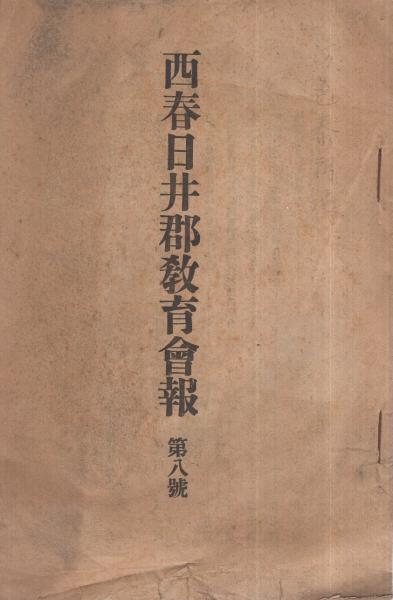 西春日井郡敎育會報
第八號